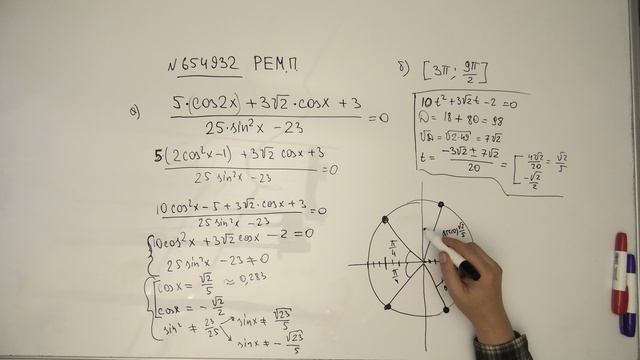 N 654932 РЕМ.П.
а)
5·(cos2x)+3√2·cosx+3 / 25·sin²x-23 =0
5(2cos²x-1)+3√2 cosx+3 / 25 sin²x-23 =0
10cos²x-5+3√2·cosx+3 / 25 sin²x-23 =0
10cos²x+3√2cosx-2=0
25 sin²x-23≠0
cosx=√2/5 ≈0,283
cosx=-√2/2
sin²≠23/25
sinx≠√23/5
sinx≠-√23/5
б) [3π; 9π/2]
10t²+3√2t-2=0
D=18+80=98
√D=√2·49=7√2
t=-3√2±7√2 / 20 = [ 4√2/20=√2/5
-√2/2
π/4
π/4